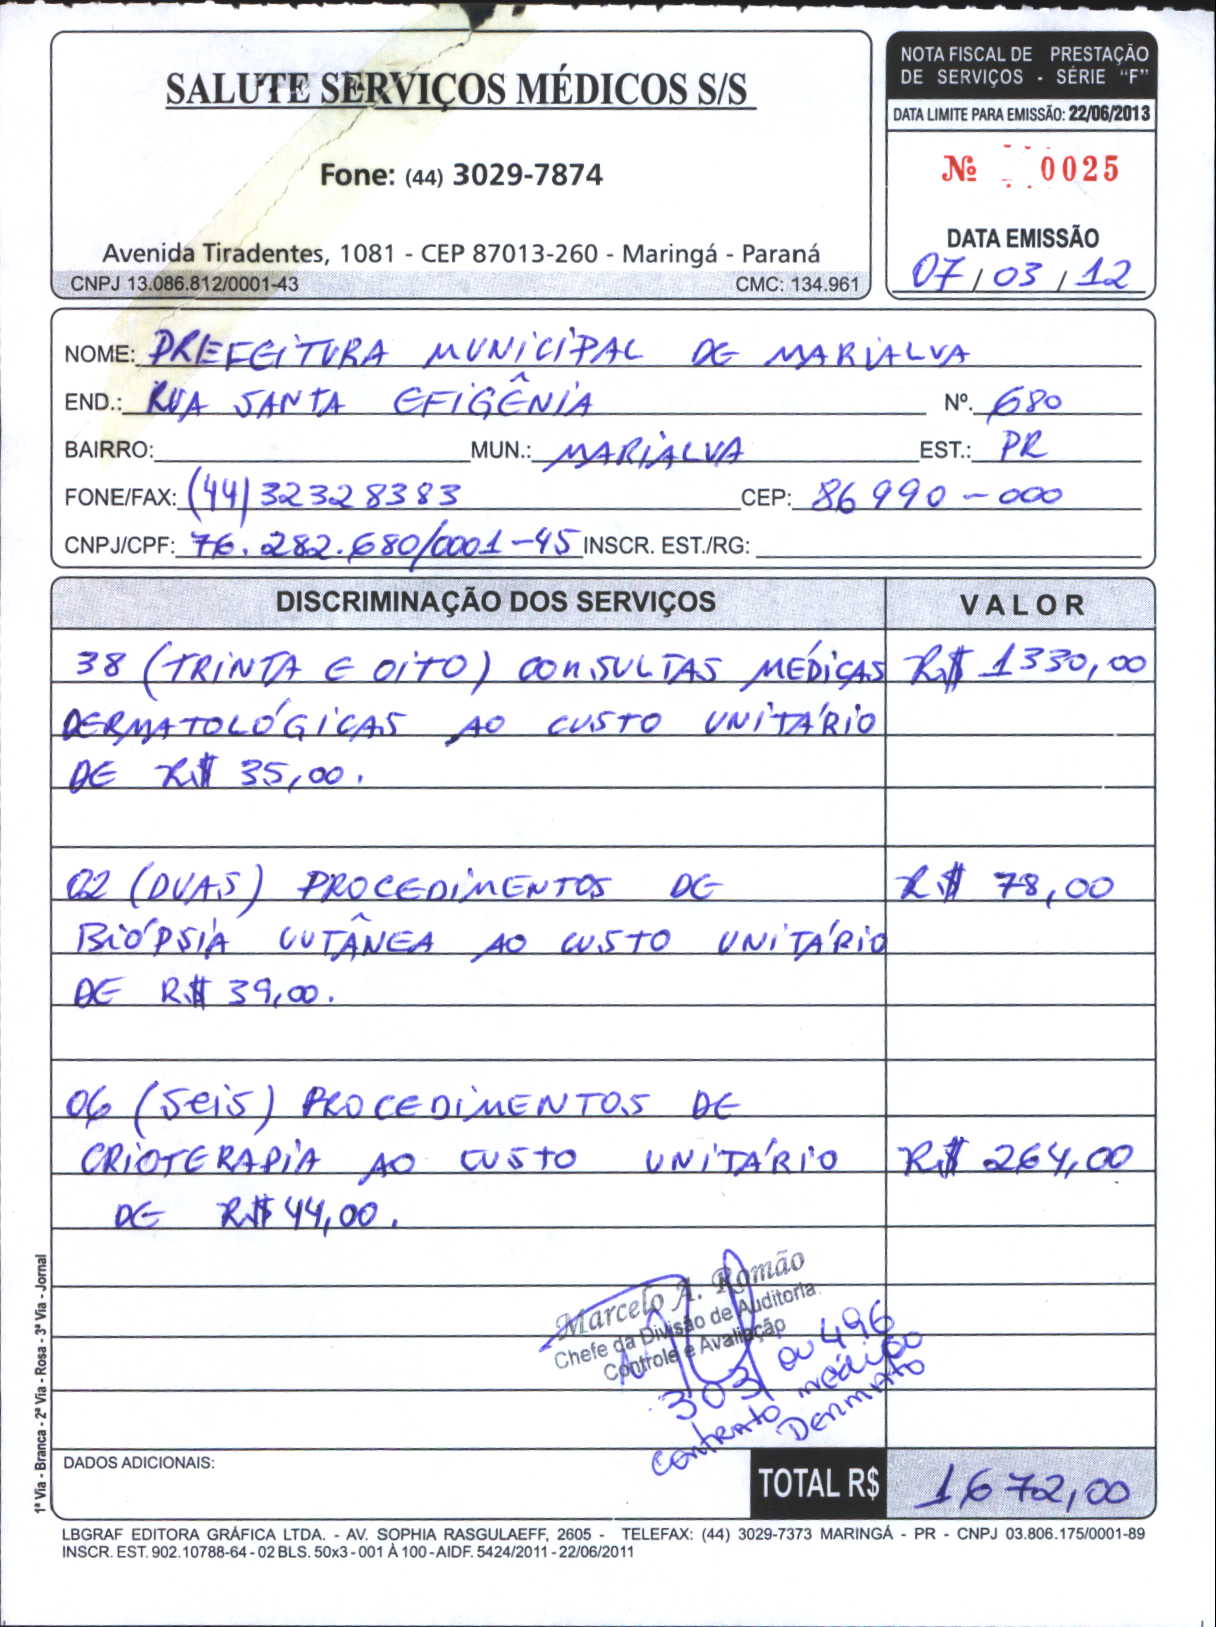 SALUTE SERVIÇOS MÉDICOS S/S
Fone: (44) 3029-7874
Avenida Tiradentes, 1081 - CEP 87013-260 - Maringá - Paraná
CNPJ 13.086.812/0001-43 CMC: 134.961
NOTA FISCAL DE PRESTAÇÃO
DE SERVIÇOS - SÉRIE "F"
DATA LIMITE PARA EMISSÃO: 22/06/2013
Nº 0025
DATA EMISSÃO
07/03/12
NOME: PREFEITURA MUNICIPAL DE MARIALVA
END.: RUA SANTA EFIGÊNIA Nº. 680
BAIRRO: MUN.: MARIALVA EST.: PR
FONE/FAX: (44) 32328383 CEP: 86990-000
CNPJ/CPF: 76.282.680/0001-45 INSCR. EST./RG:
DISCRIMINAÇÃO DOS SERVIÇOS VALOR
38 (TRINTA E OITO) CONSULTAS MÉDICAS R$ 1330,00
DERMATOLÓGICAS AO CUSTO UNITÁRIO
DE R$ 35,00.
02 (DUAS) PROCEDIMENTOS DE R$ 78,00
BIÓPSIA CUTÂNEA AO CUSTO UNITÁRIO
DE R$ 39,00.
06 (SEIS) PROCEDIMENTOS DE
CRIOTERAPIA AO CUSTO UNITÁRIO R$ 264,00
DE R$ 44,00.
Marcelo A. Romão
Chefe da Divisão de Auditoria
Controle e Avaliação
303 ou 496
contrato médico
Dermato
DADOS ADICIONAIS:
TOTAL R$ 1672,00
1ª Via - Branca - 2ª Via - Rosa - 3ª Via - Jornal
LBGRAF EDITORA GRÁFICA LTDA. - AV. SOPHIA RASGULAEFF, 2605 - TELEFAX: (44) 3029-7373 MARINGÁ - PR - CNPJ 03.806.175/0001-89
INSCR. EST. 902.10788-64 - 02 BLS. 50x3 - 001 À 100 - AIDF. 5424/2011 - 22/06/2011